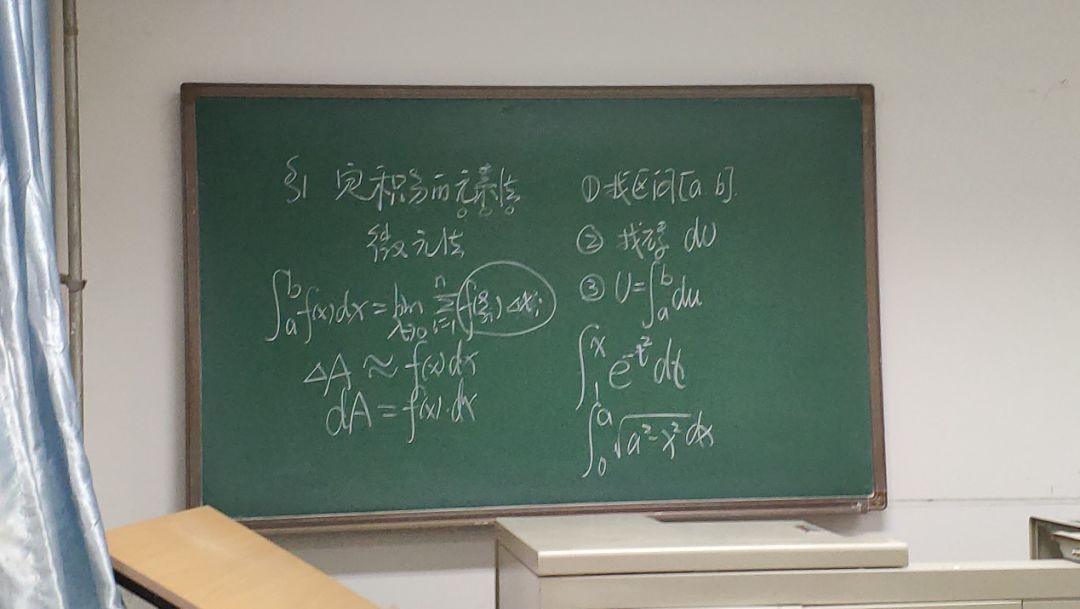 §1 定积分的元素法
微元法
∫_a^b f(x)dx = lim_{λ→0} Σ_{i=1}^n f(ξ_i)Δx_i
ΔA ≈ f(x)dx
dA = f(x)·dx
① 找区间[a b].
② 找 dU
③ U=∫_a^b du
∫_1^x e^{-t²}dt
∫_0^a √(a²-x²)dx